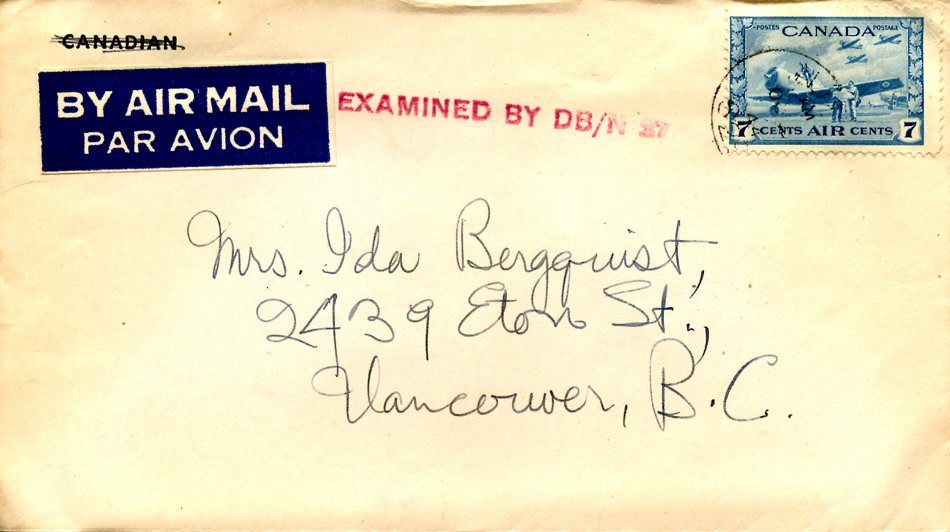 CANADIAN
BY AIR MAIL
PAR AVION
EXAMINED BY DB/N 27
POSTES CANADA POSTAGE
7 CENTS AIR CENTS 7
Mrs. Ida Bergquist,
2439 Eton St.,
Vancouver, B.C.